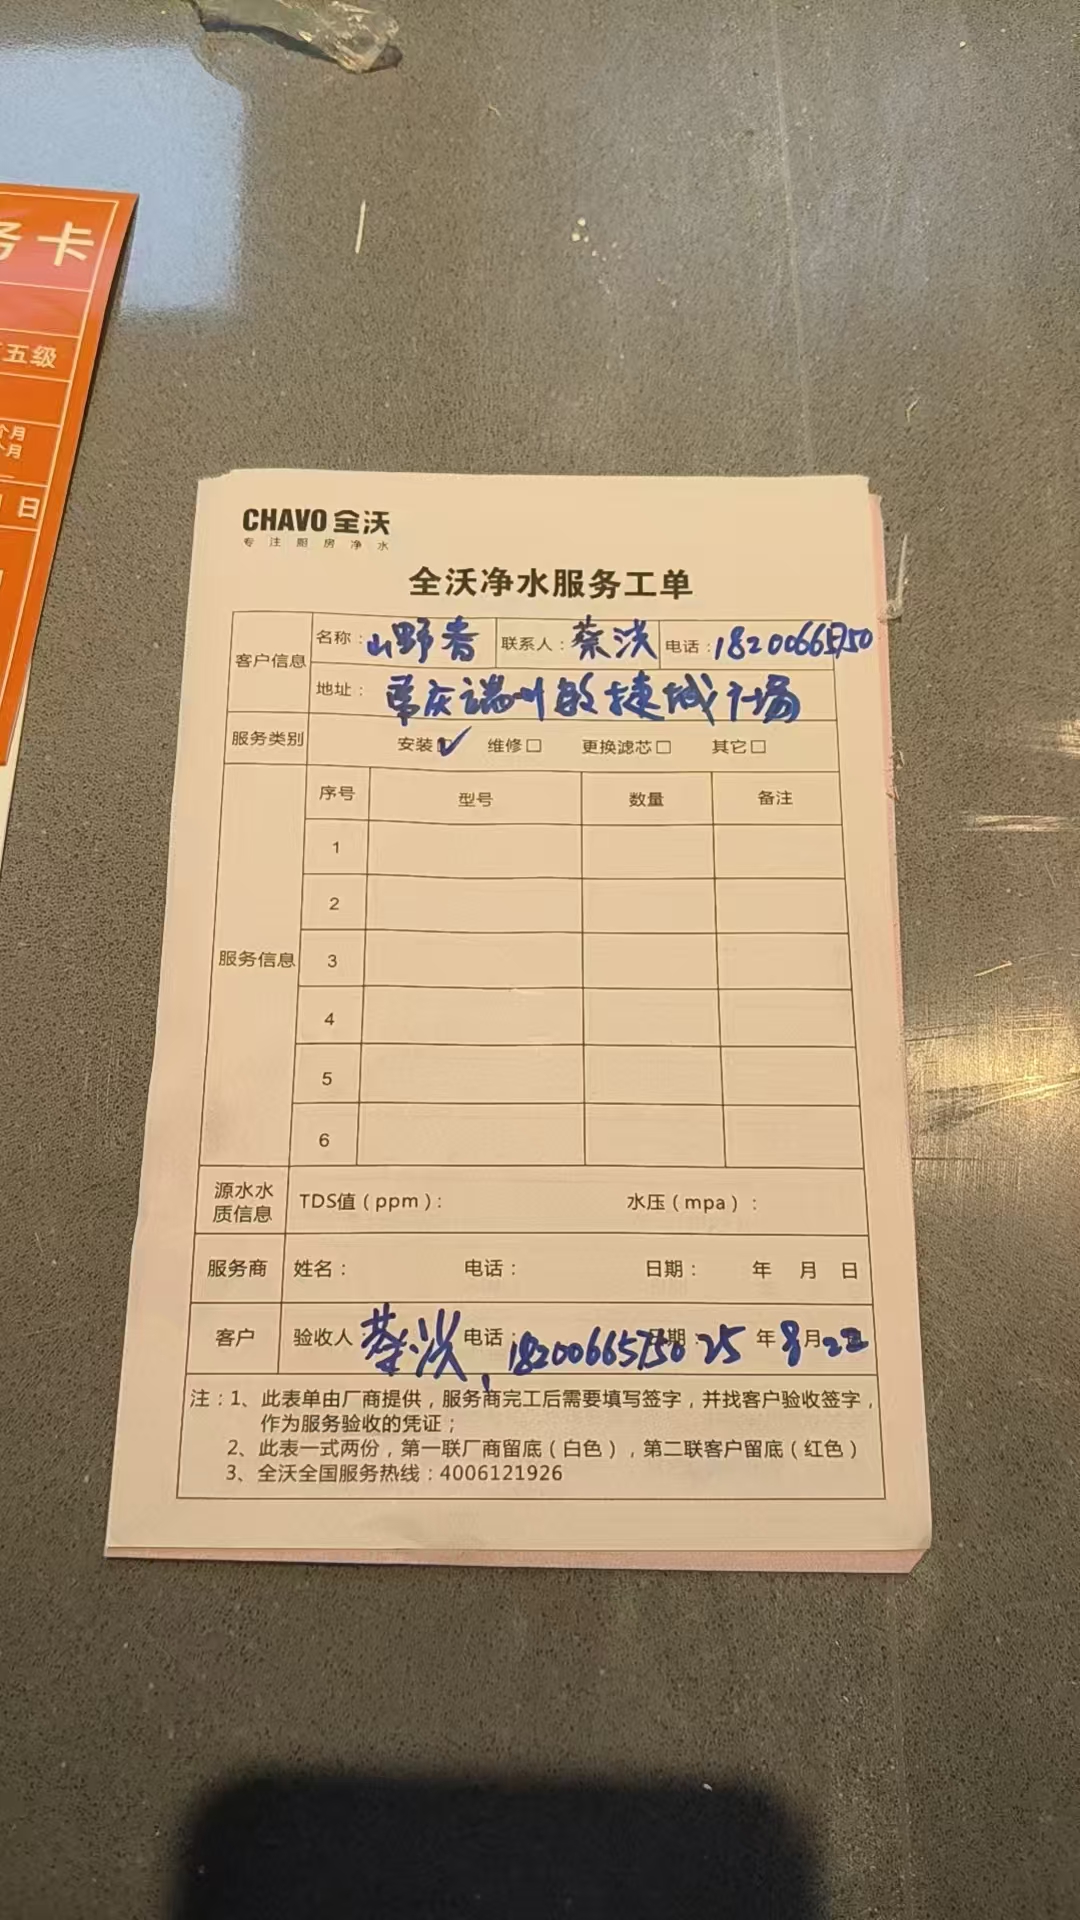 务卡
五级
个月
个月
日
CHAVO 全沃
专注厨房净水
全沃净水服务工单
客户信息 名称：山野香 联系人：蔡洪 电话：18200665750
地址：肇庆端州敏捷城广场
服务类别 安装☑ 维修□ 更换滤芯□ 其它□
服务信息 序号 型号 数量 备注
1
2
3
4
5
6
源水水质信息 TDS值（ppm）： 水压（mpa）：
服务商 姓名： 电话： 日期： 年 月 日
客户 验收人 蔡洪 电话：18200665750 日期：25年8月22
注：1、此表单由厂商提供，服务商完工后需要填写签字，并找客户验收签字，
作为服务验收的凭证；
2、此表一式两份，第一联厂商留底（白色），第二联客户留底（红色）
3、全沃全国服务热线：4006121926